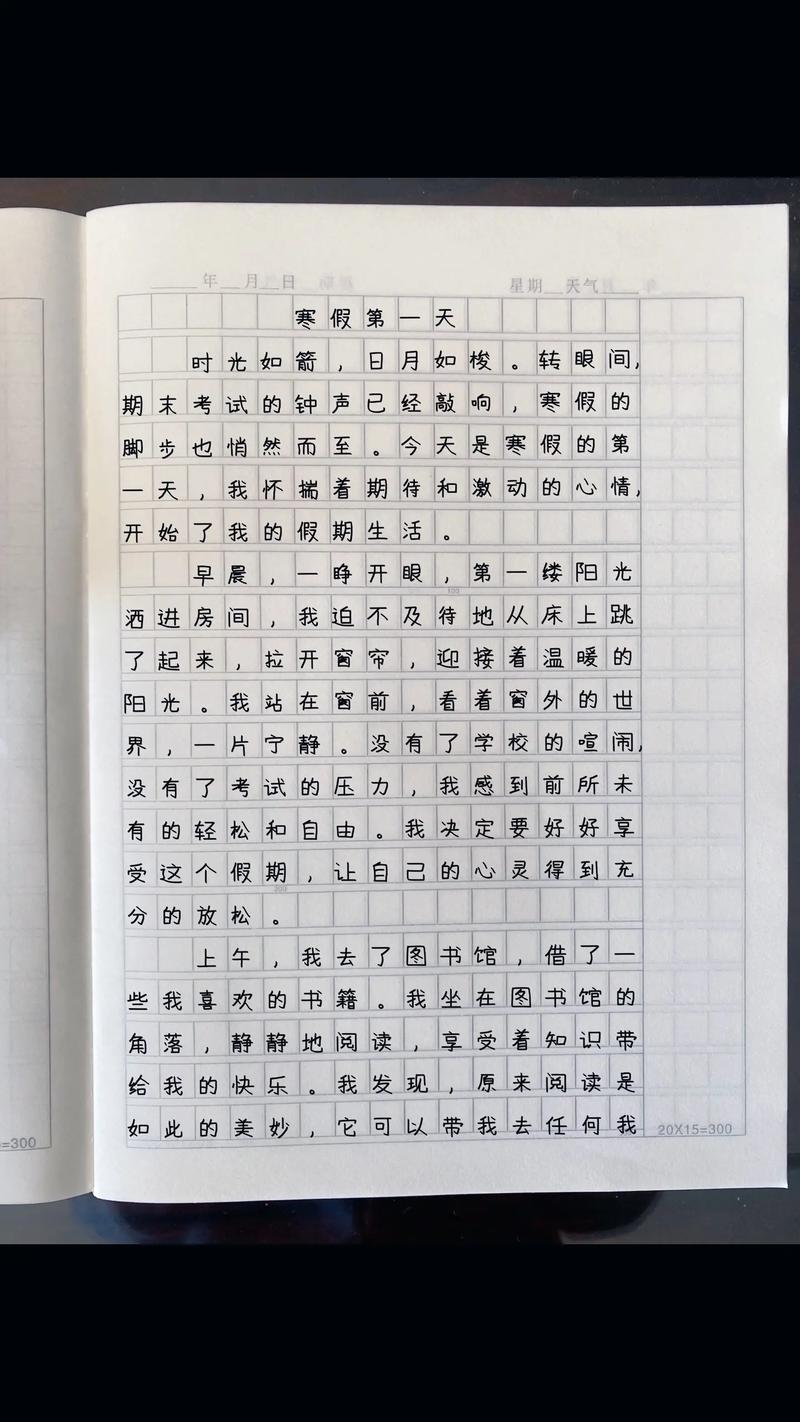 年 月 日
星期 天气
寒假第一天
时光如箭，日月如梭。转眼间，
期末考试的钟声已经敲响，寒假的
脚步也悄然而至。今天是寒假的第
一天，我怀揣着期待和激动的心情，
开始了我的假期生活。
早晨，一睁开眼，第一缕阳光
洒进房间，我迫不及待地从床上跳
了起来，拉开窗帘，迎接着温暖的
阳光。我站在窗前，看着窗外的世
界，一片宁静。没有了学校的喧闹，
没有了考试的压力，我感到前所未
有的轻松和自由。我决定要好好享
受这个假期，让自己的心灵得到充
分的放松。
上午，我去了图书馆，借了一
些我喜欢的书籍。我坐在图书馆的
角落，静静地阅读，享受着知识带
给我的快乐。我发现，原来阅读是
如此的美妙，它可以带我去任何我
20X15=300
=300